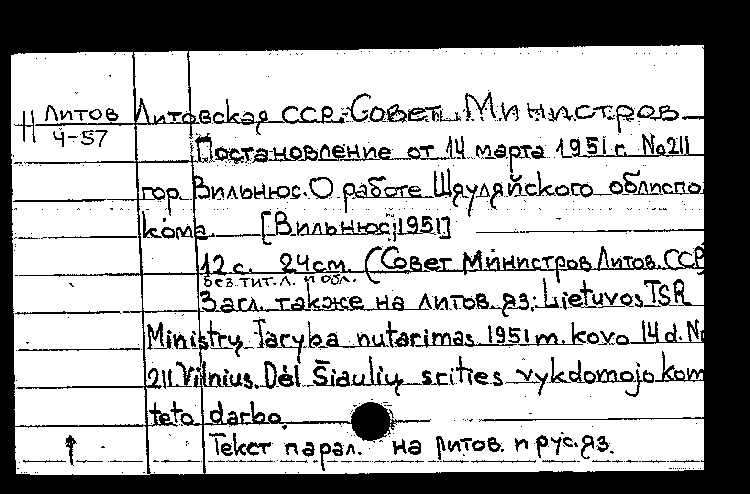 Литов Литовская ССР. Совет Министров
Ч-57
Постановление от 14 марта 1951 г. No 211
гор. Вильнюс. О работе Шяуляйского облиспо
кома. [Вильнюс, 1951]
12 с. 24 cm. (Совет Министров Литов. ССР)
без. тит. л. и обл.
Загл. также на литов. яз: Lietuvos TSR
Ministrų Taryba nutarimas 1951 m. kovo 14 d. Nr
211. Vilnius. Dėl Šiaulių srities vykdomojo kom
teto darbo.
Текст парал. на литов. и рус. яз.